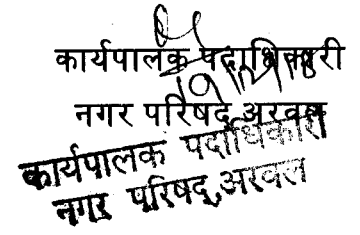 कार्यपालक पदाधिकारी
नगर परिषद् अरवल
कार्यपालक पदाधिकारी
नगर परिषद्, अरवल